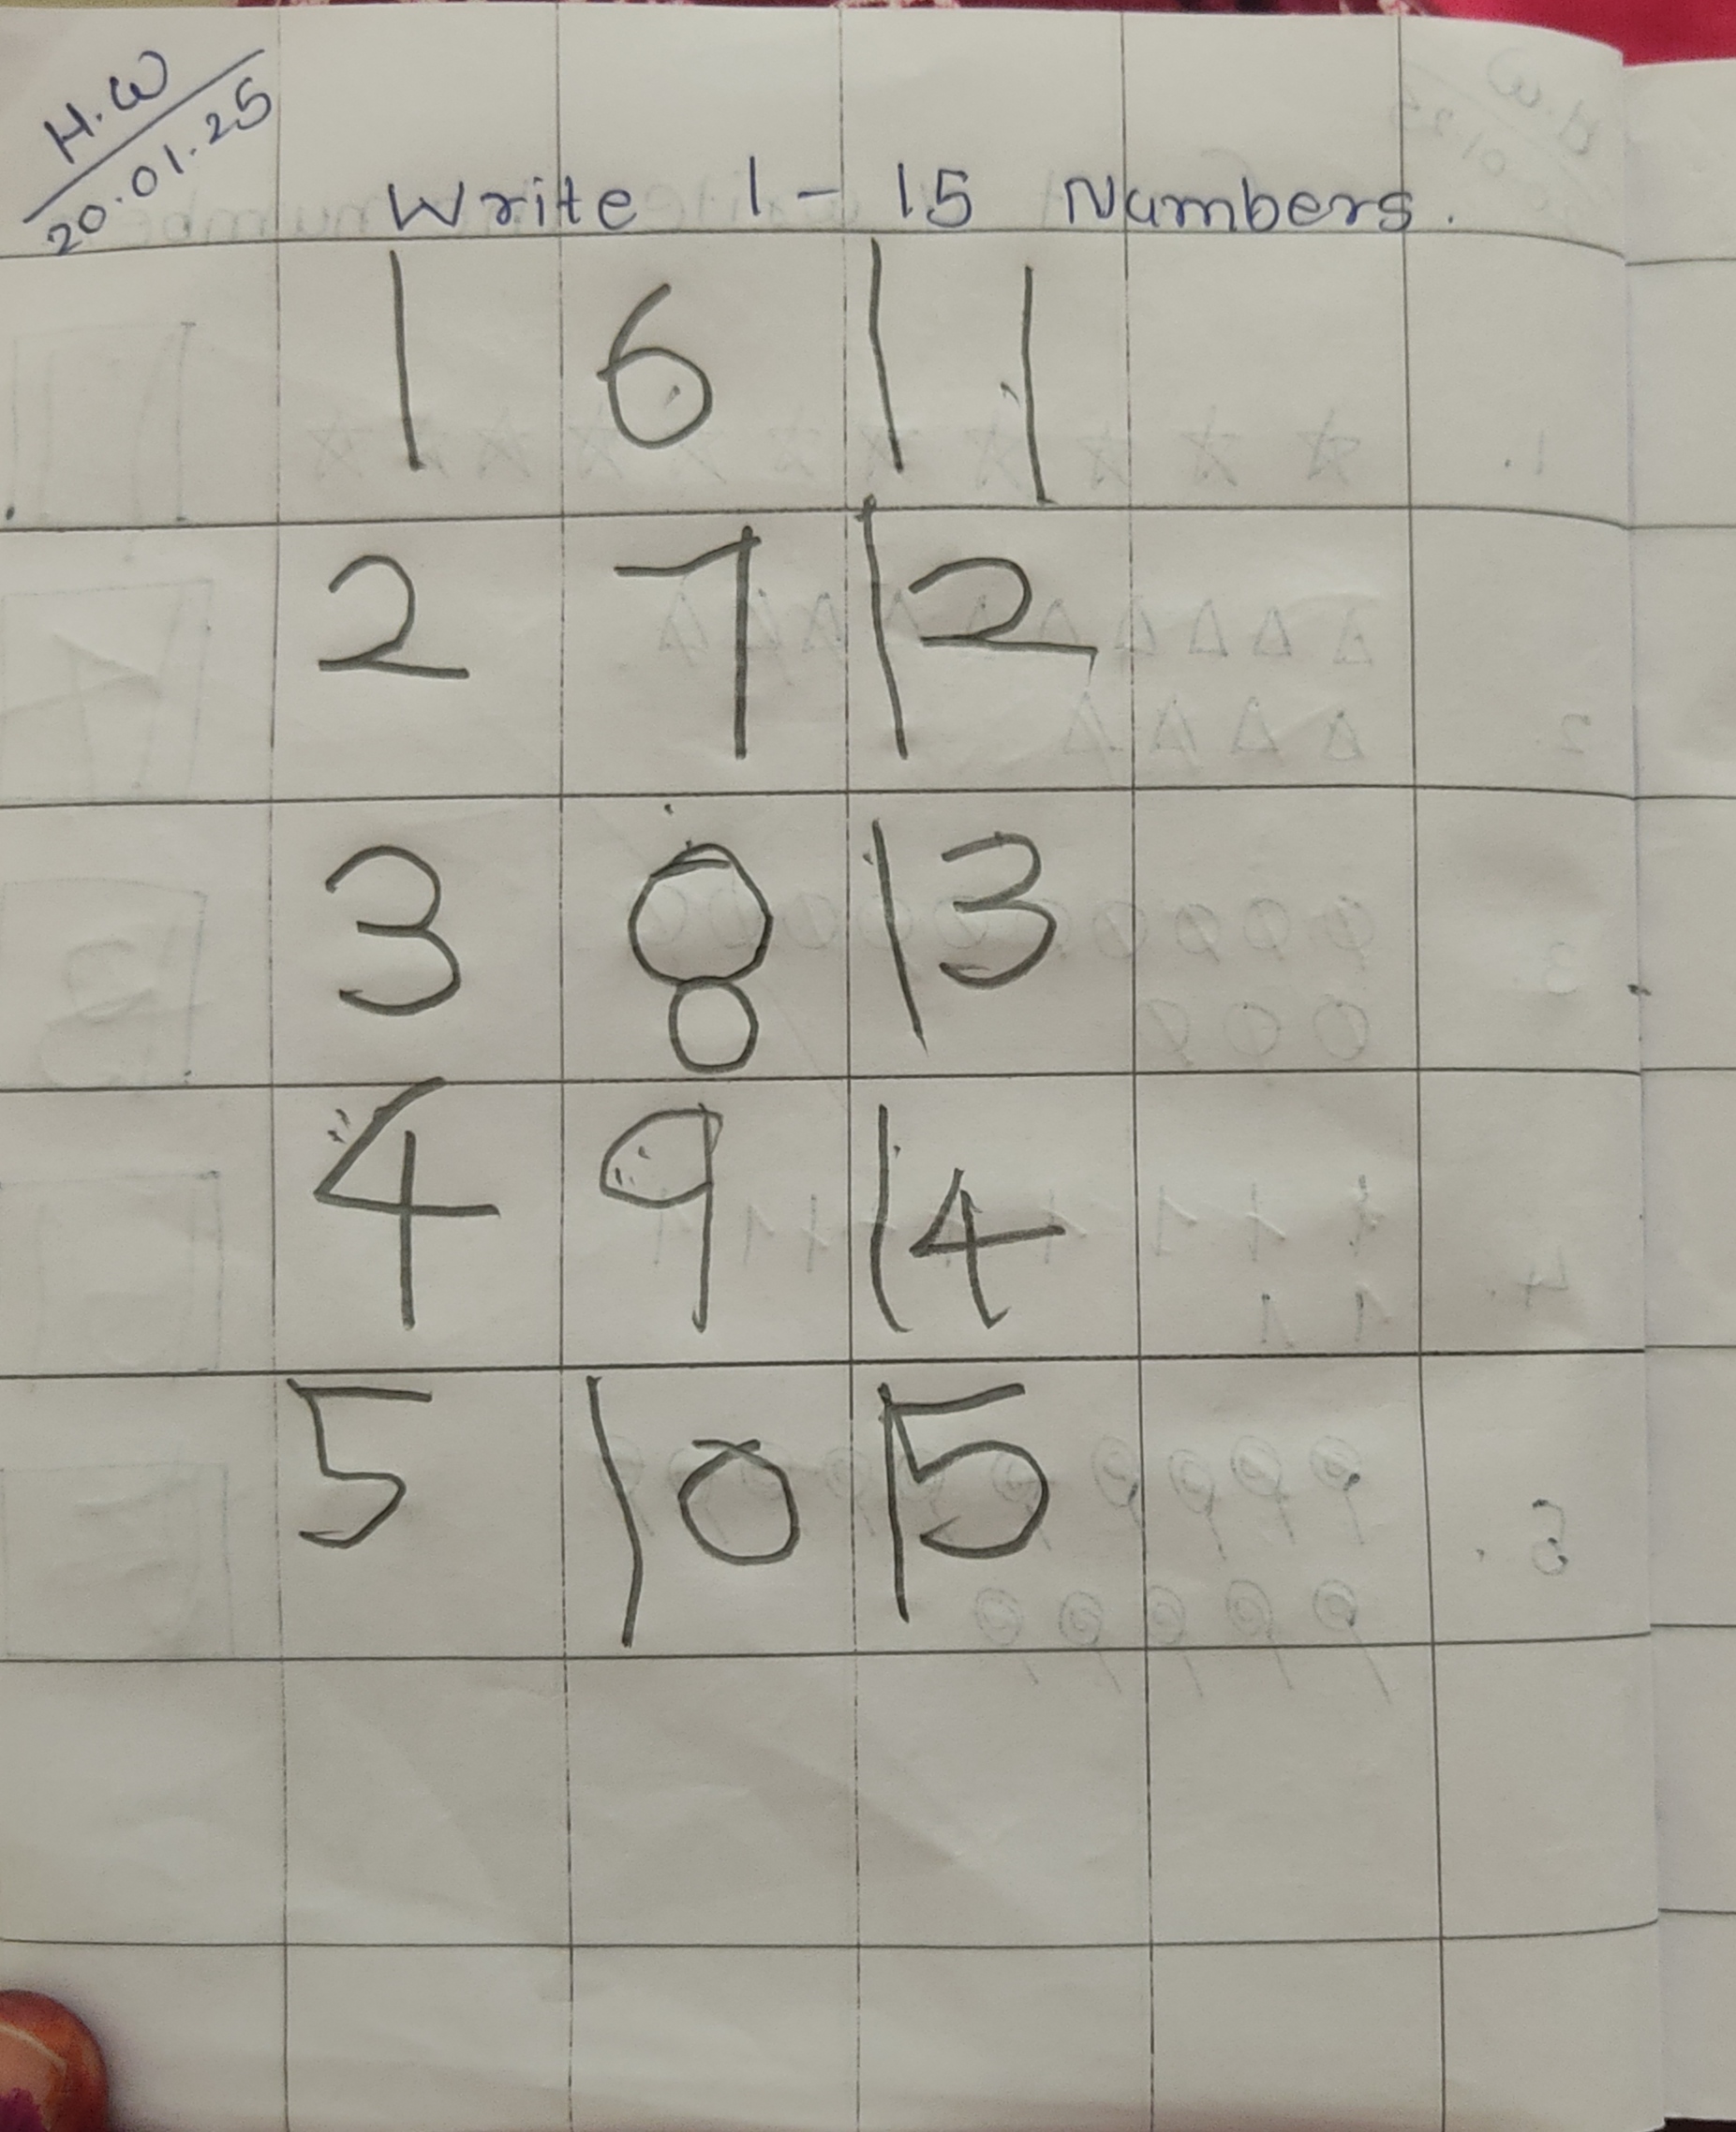 H.W
20.01.25
Write 1 - 15 Numbers.
1 6 11
2 7 12
3 8 13
4 9 14
5 10 15